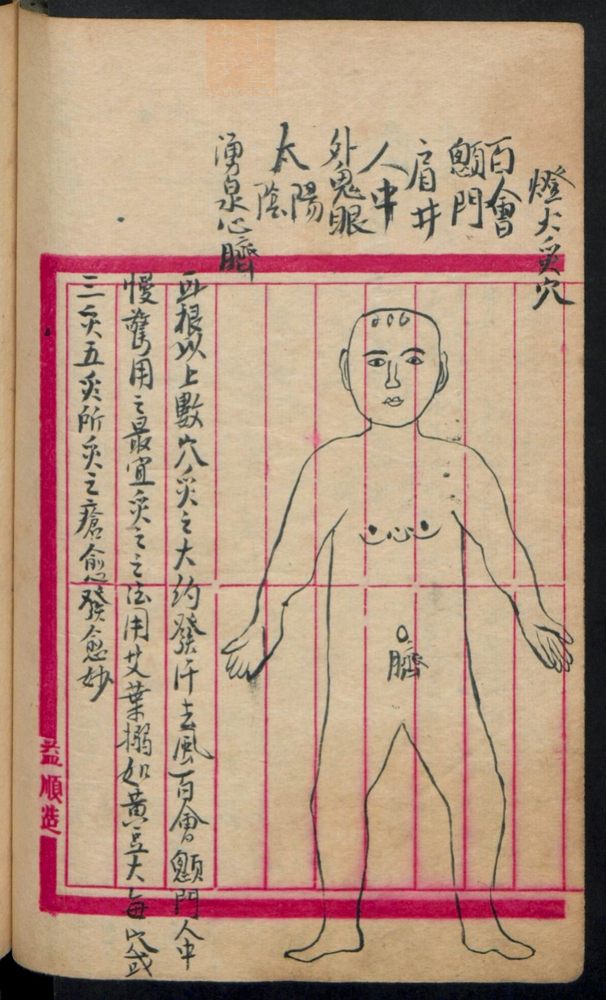 燈火炙穴
百會
顖門
肩井
人中
外鬼眼
太陽
陰
湧泉心臍
耳根以上數穴炙之大約發汗去風百會顖門人中
慢驚用之最宜炙之之法用艾葉搦如黃豆大每穴或
三炙五炙所炙之瘡愈發愈妙
臍
益順造